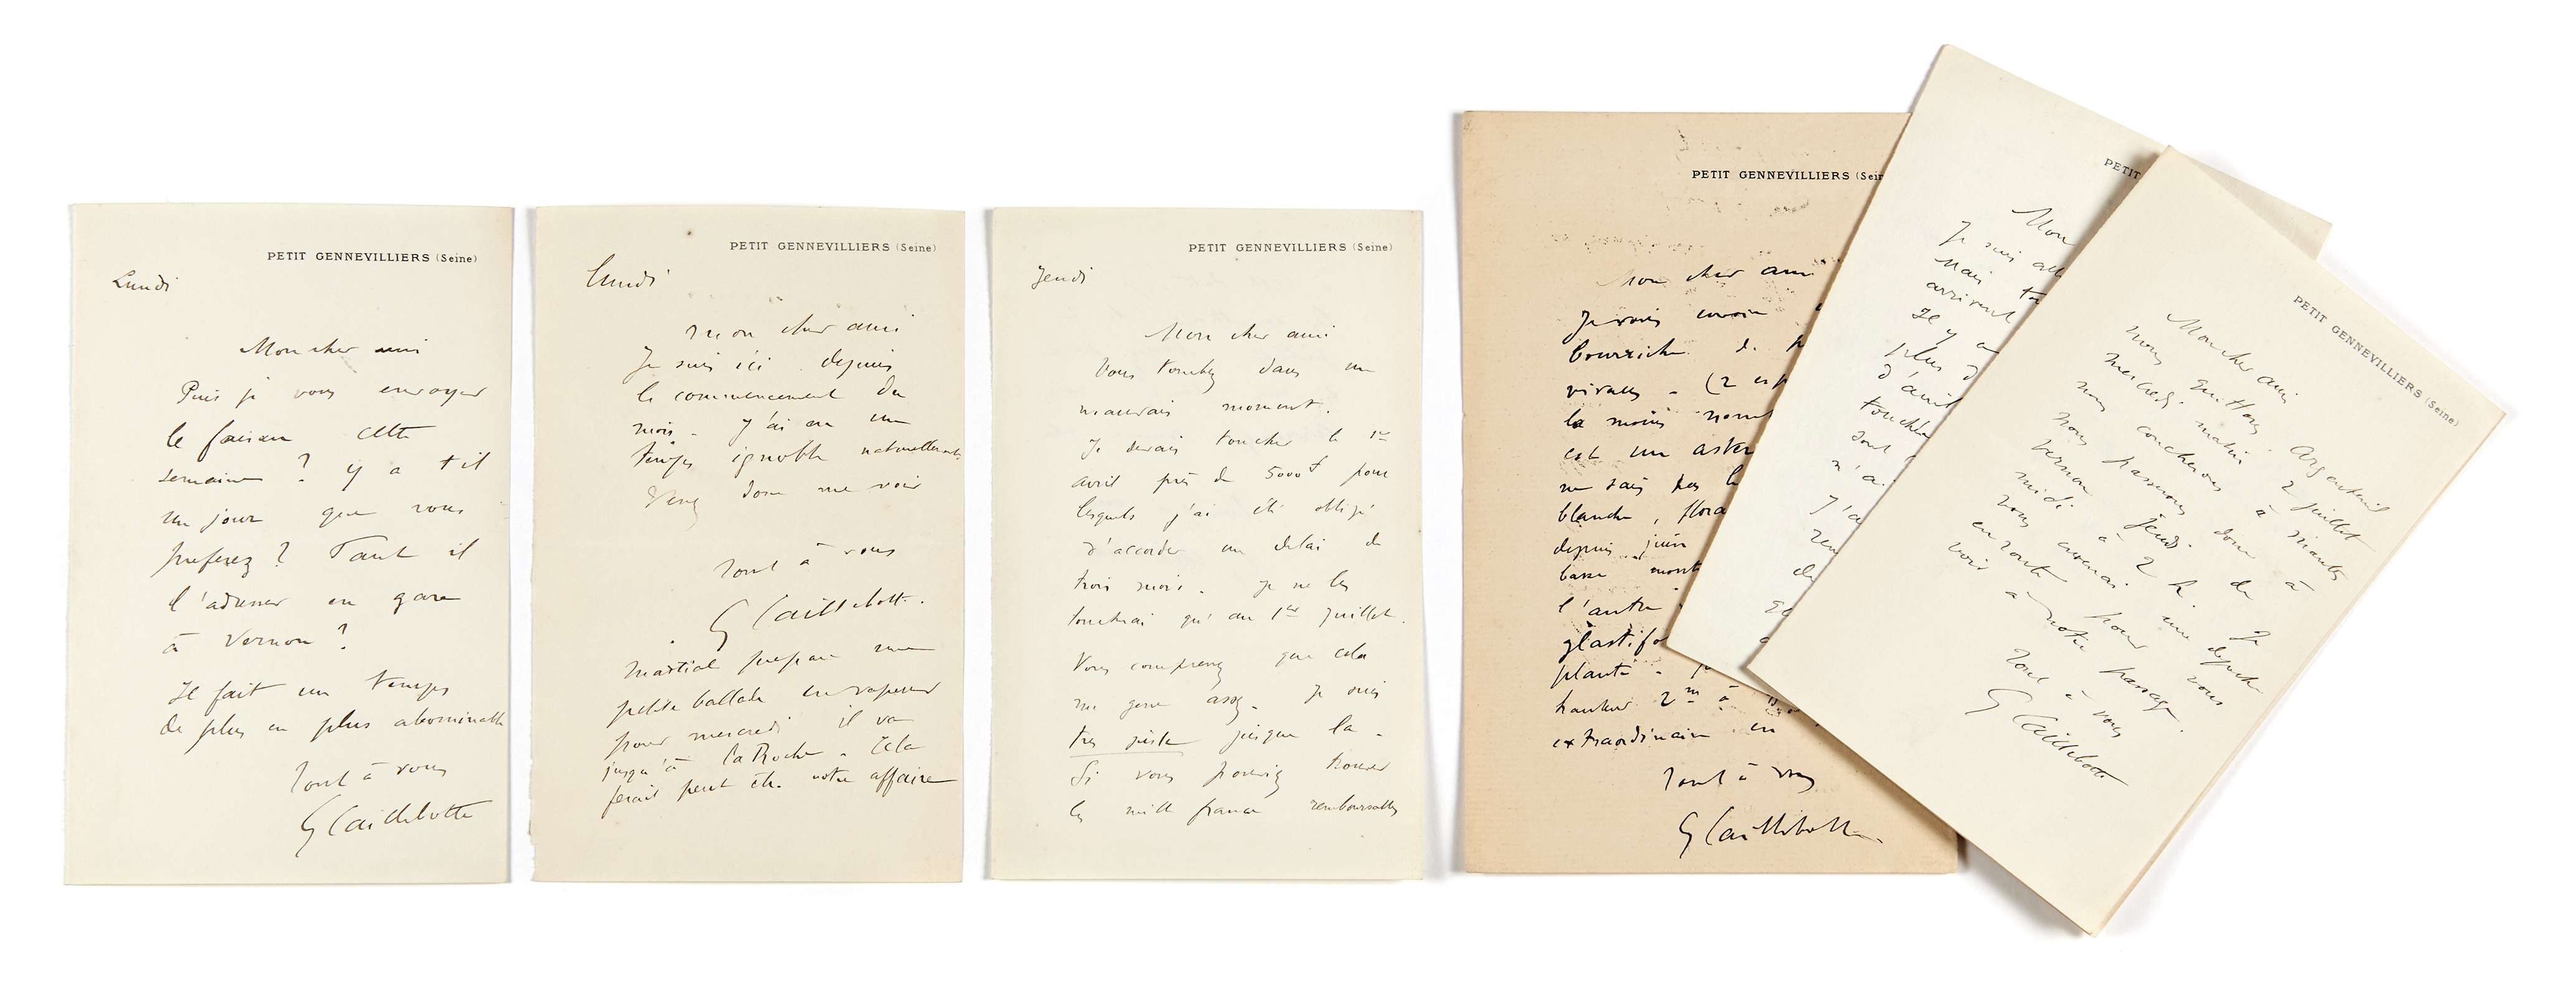 PETIT GENNEVILLIERS (Seine)
Lundi
Mon cher ami
Puis je vous envoyer
le faisan cette
semaine ? y a t il
un jour que vous
preferez ? Faut il
l'adresser en gare
à Vernon ?
Il fait un temps
de plus en plus abominable
Tout à vous
G Caillebotte
PETIT GENNEVILLIERS (Seine)
Lundi
Mon cher ami
Je suis ici depuis
le commencement du
mois - J'ai eu un
temps ignoble naturellement.
Venez donc me voir
Tout à vous
G Caillebotte.
Martial prepare une
petite ballade en vapeur
pour mercredi il va
jusqu'à la Roche - Cela
ferait peut etre votre affaire
PETIT GENNEVILLIERS (Seine)
Jeudi
Mon cher ami
Vous tombez dans un
mauvais moment.
Je devais toucher le 1er
avril près de 5000f pour
lesquels j'ai été obligé
d'accorder un delai de
trois mois. Je ne les
toucherai qu'au 1er Juillet.
Vous comprenez que cela
me gene assez. Je suis
très juste jusque la -
Si vous pouviez trouver
les mille francs remboursables
PETIT GENNEVILLIERS (Sein
Mon cher ami
Je vais
bourriche de
vivaces - (2
la moins
est un aster
ne sais pas le
blanche, flora
depuis juin
basse
l'autre
glastifo
plante -
hauteur 2m à
extraordinaire en
Tout à vous
G Caillebotte
PETIT
Mon
Je suis all
Mais
arrivent
Il y a
plus d
d'avril
toucher
sont
n'a
J'a
PETIT GENNEVILLIERS (Seine)
Mon cher ami
nous quittons Argenteuil
mercredi matin 2 juillet
nous coucherons à Mantes
nous passerons donc à
Vernon jeudi de
midi à 2 h. Je
vous enverrai une depeche
en route pour vous
voir à notre passage.
Tout à vous
G Caillebotte